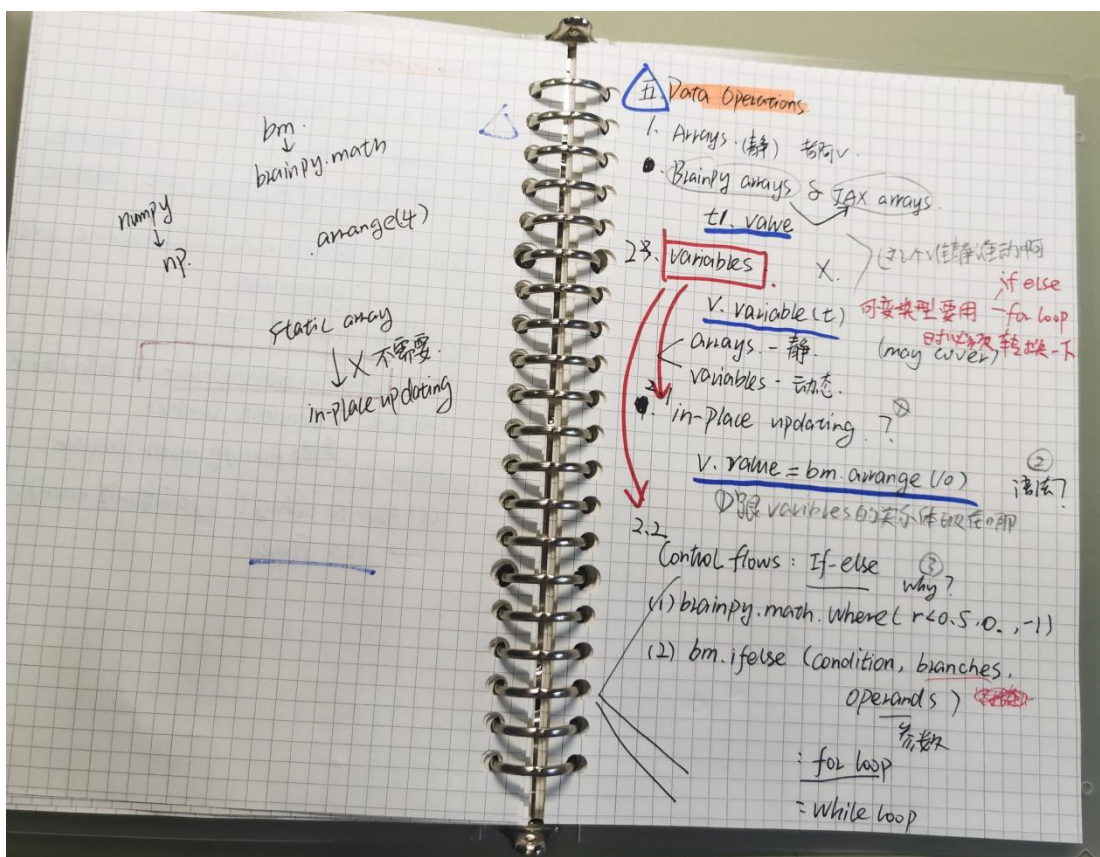 bm.
↓
brainpy.math
numpy
↓
np.
.arrange(4)
static array
↓ X 不需要.
in-place updating
五 Data Operations.
1. Arrays.(静)
Brainpy arrays & JAX arrays.
t1. value
2. variables X.
if else
V. variable(t) 可变类型要用 — for loop
时必须转换一下
arrays. - 静. (may cover)
variables - 动态.
2.1 in-place updating ?
V. value = bm.arrange(10) ②
语法?
①跟 varibles的关系体现在哪
2.2
Control flows : If-else ③
why?
(1) brainpy.math.where( r<0.5, 0., -1)
(2) bm.ifelse (condition, branches,
operands)
参数
: for loop
= while loop